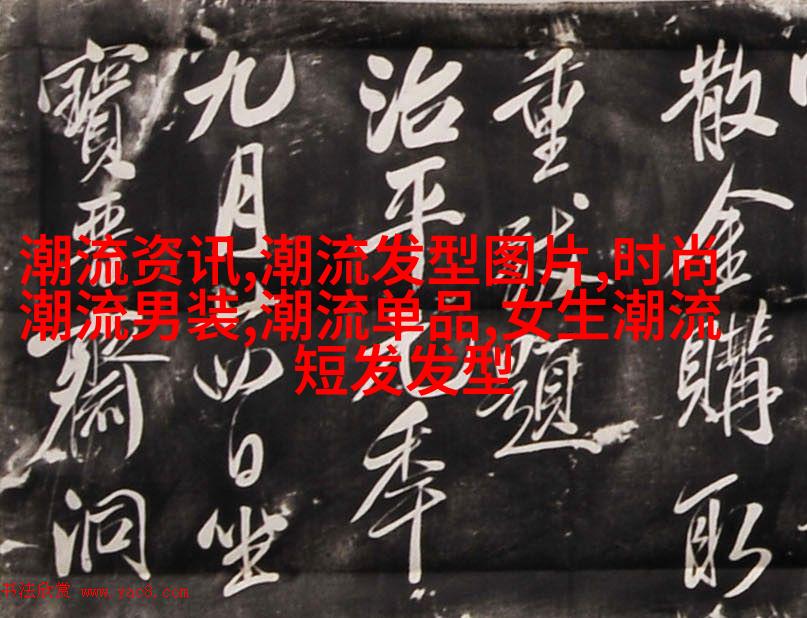 散金購取
重跋題
治平年
九月日坐
寶晉齋洞
潮流资讯,潮流发型图片,时尚
潮流男装,潮流单品,女生潮流
短发发型
书法欣赏 www.yac8.com